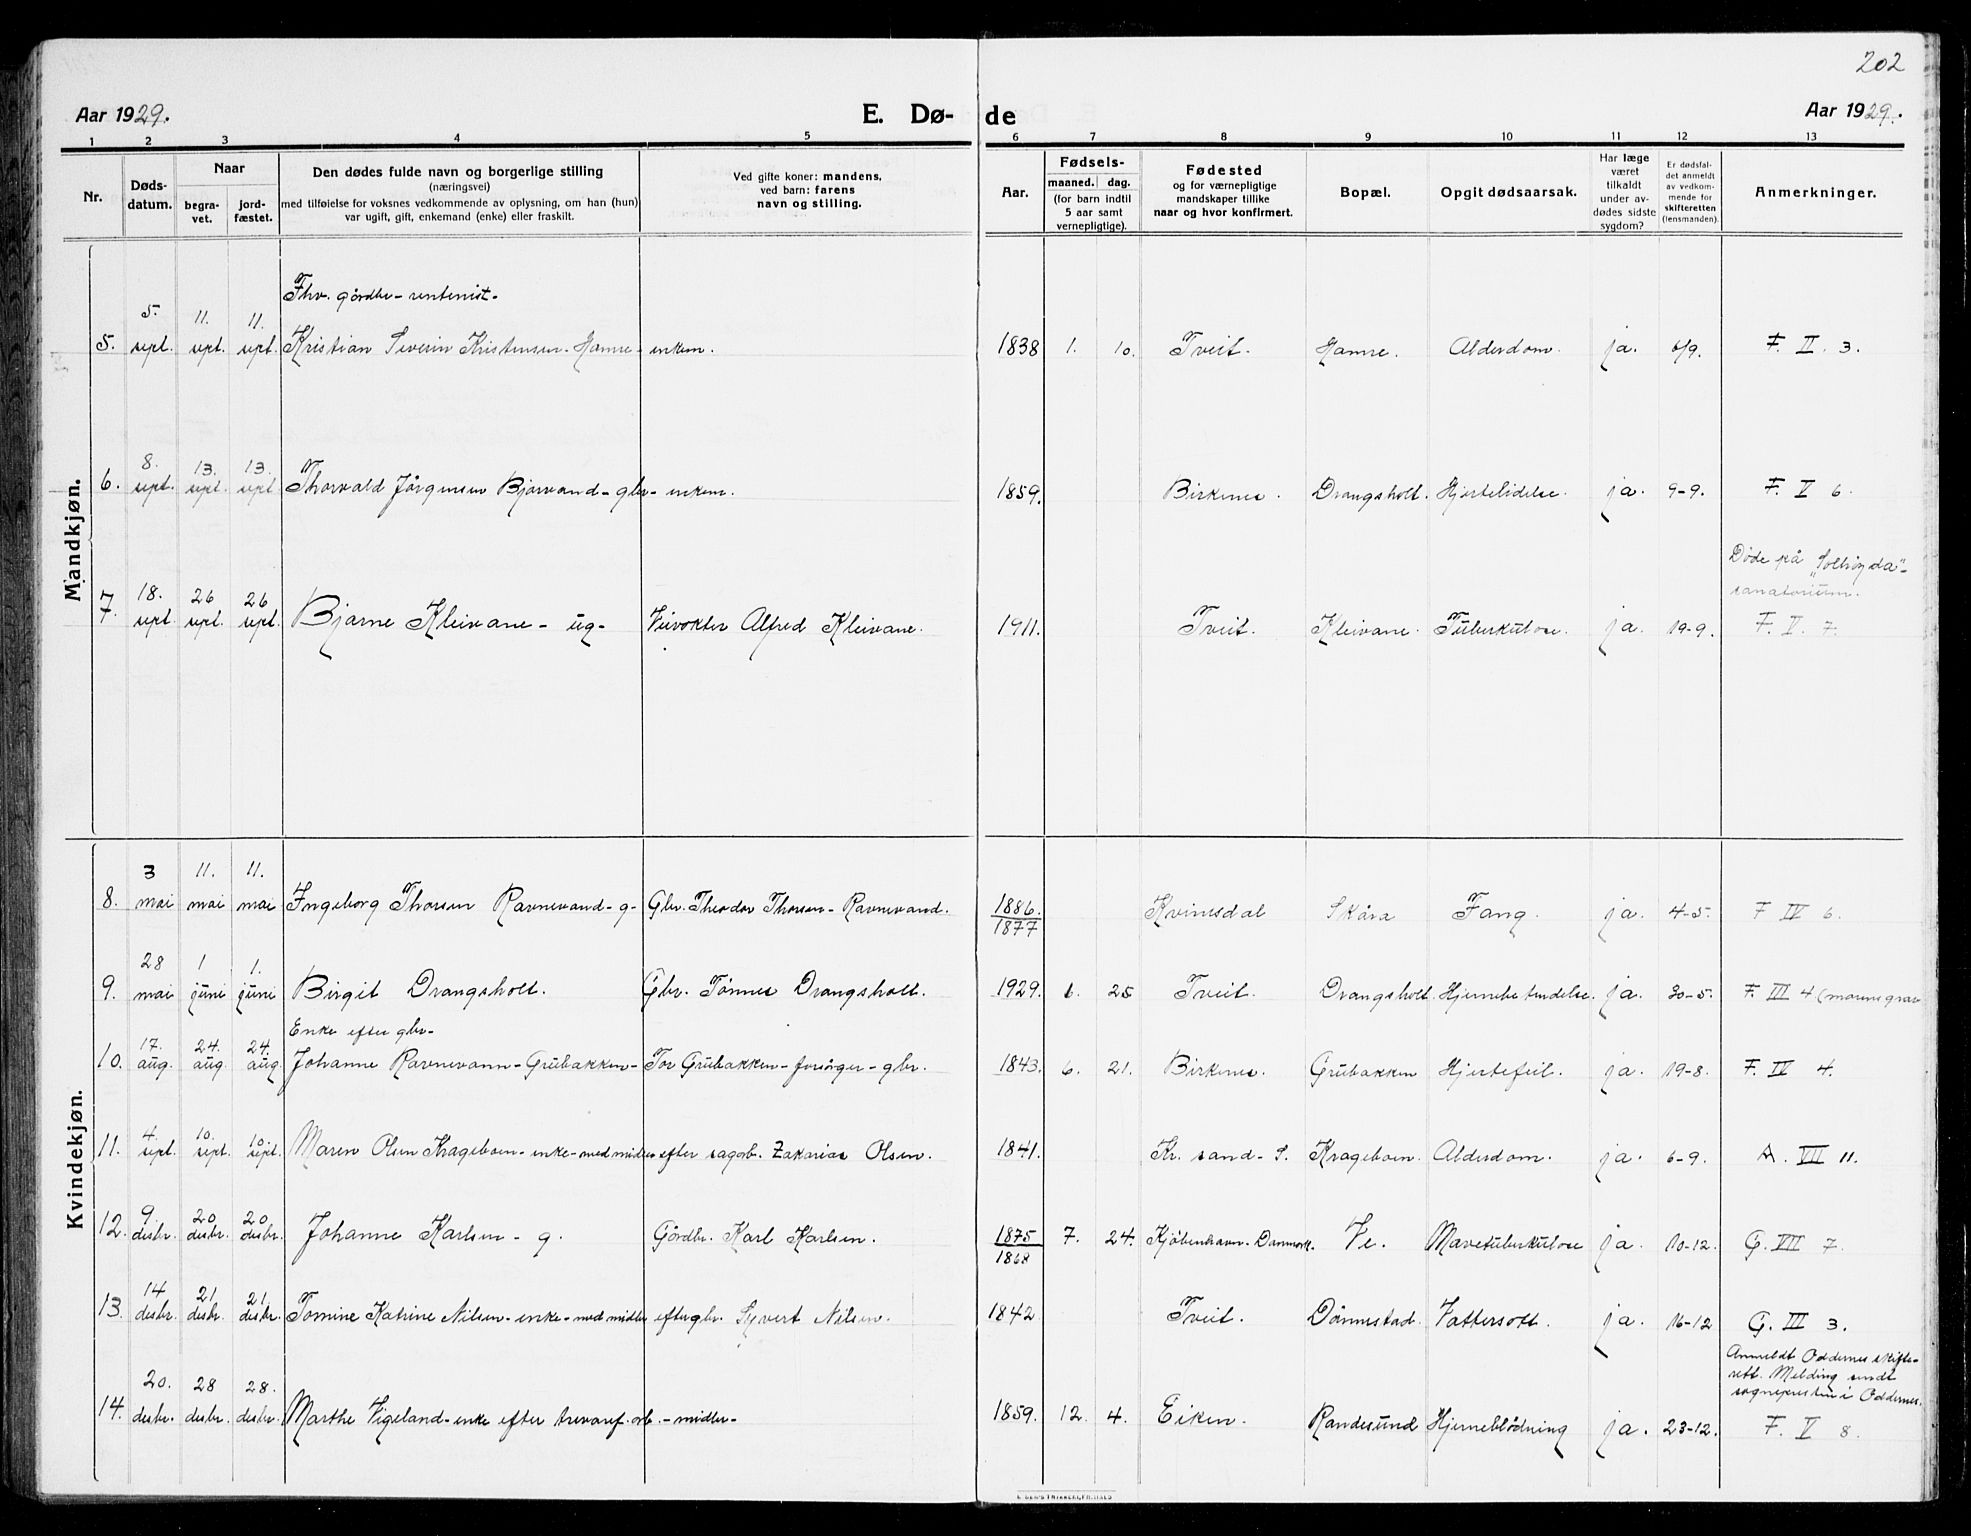 202
Aar 1929.
E. Dø- de
Aar 1929.
1 2 3 4 5 6 7 8 9 10 11 12 13
Nr.
Døds-
datum.
Naar
begra-
vet.
jord-
fæstet.
Den dødes fulde navn og borgerlige stilling
(næringsvei)
med tilføielse for voksnes vedkommende av oplysning, om han (hun)
var ugift, gift, enkemand (enke) eller fraskilt.
Ved gifte koner: mandens,
ved barn: farens
navn og stilling.
Aar.
Fødsels-
maaned. dag.
(for barn indtil
5 aar samt
vernepligtige).
Fødested
og for værnepligtige
mandskaper tillike
naar og hvor konfirmert.
Bopæl.
Opgit dødsaarsak.
Har læge
været
tilkaldt
under av-
dødes sidste
sygdom?
Er dødsfal-
det anmeldt
av vedkom-
mende for
skifteretten
(lensmanden).
Anmerkninger.
Mandkjøn.
Fhv. gårdbr - rentenist -
5. 5. sept. 11. sept. 11. sept. Kristian Severin Kristensen - Hamre - enkem. 1838 1. 10. Tveit. Hamre. Alderdom. ja. 6/9. F. II. 3.
6. 8. sept. 13. sept. 13. sept Thorvald Jörgensen Bjorvand - gbr - enkem. 1859. Birkenes. Drangsholt. Hjertelidelse. ja. 9-9. F. V 6.
Døde på "Solhøgda"-
sanatorium.
7. 18. sept. 26 sept. 26 sept. Bjarne Kleivane - ug - Veivokter Alfred Kleivane. 1911. Tveit. Kleivane. Tuberkulose. ja. 19-9. F. V. 7.
Kvindekjøn.
8. 3 mai 11. mai 11. mai Ingeborg Thorsen Ravnevand - g - Gbr. Theodor Thorsen - Ravnevand. 1886. Kvinesdal Skåra Fang. ja. 4-5. F IV 6.
1877
9. 28 mai 1 juni 1. juni Birgit Drangsholt. Gbr. Tønnes Drangsholt. 1929. 6. 25 Tveit. Drangsholt Hjernebetendelse. ja. 30-5. F. III 4 (morens grav
Enke efter gbr -
10. 17. aug. 24. aug. 24. aug. Johanne Ravnevann - Grubakken - Tor Grubakken - forsörger - gbr. 1843. 6. 21. Birkenes. Grubakken Hjertefeil. ja. 19-8. F. IV 4.
11. 4. sept. 10. sept. 10 sept. Maren Olsen Krageboen - enke - med midler efter sagarb. Zakarias Olsen. 1841. Kr. sand - S. Krageboen. Alderdom. ja. 6-9. A. VII 11.
12. 9. desbr. 20 desbr. 20. desbr. Johanne Karlsen - g. Gårdbr. Karl Karlsen. 1875 7. 24. Kjøbenhavn - Danmark. Ve. Mavetuberkulose ja. 10-12. G. VII 7.
1868
13. 14 desbr. 21. desbr. 21. desbr. Tomine Katrine Nilsen - enke - med midler efter gbr. Syvert Nilsen. 1842 Tveit. Dönnestad. Vattersott. ja. 16-12 G. III 3.
Anmeldt Oddernes skifte-
rett. Melding sendt
sognepresten i Oddernes.
14. 20. desbr. 28 desbr. 28. desbr. Marthe Vigeland - enke efter trevaref. arb. - midler - 1859. 12. 4. Eiken. Randesund Hjerneblödning ja. 23-12. F. V 8.